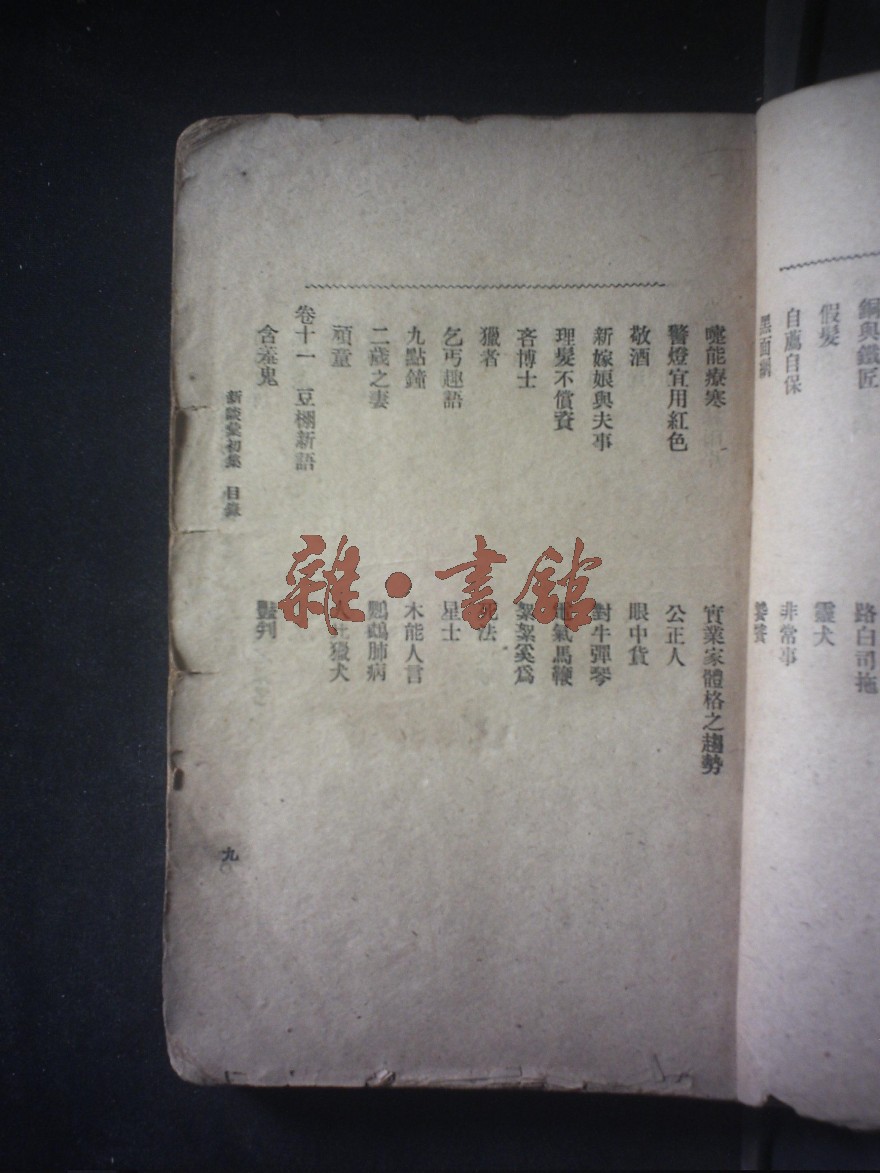 銅與鐵匠
路白司拖
假髮
靈犬
自薦自保
非常事
黑面網
嚏能療寒
實業家體格之趨勢
警燈宜用紅色
公正人
敬酒
眼中貨
新嫁娘與夫事
對牛彈琴
理髮不償資
地氣馬鞭
吝博士
絮絮奚為
獵者
死法
乞丐趣語
星士
九點鐘
木能人言
二歲之妻
鸚鵡肺病
頑童
獵犬
卷十一 豆棚新語
含羞鬼
豔判
新談彙初集 目錄
九
雜·書館